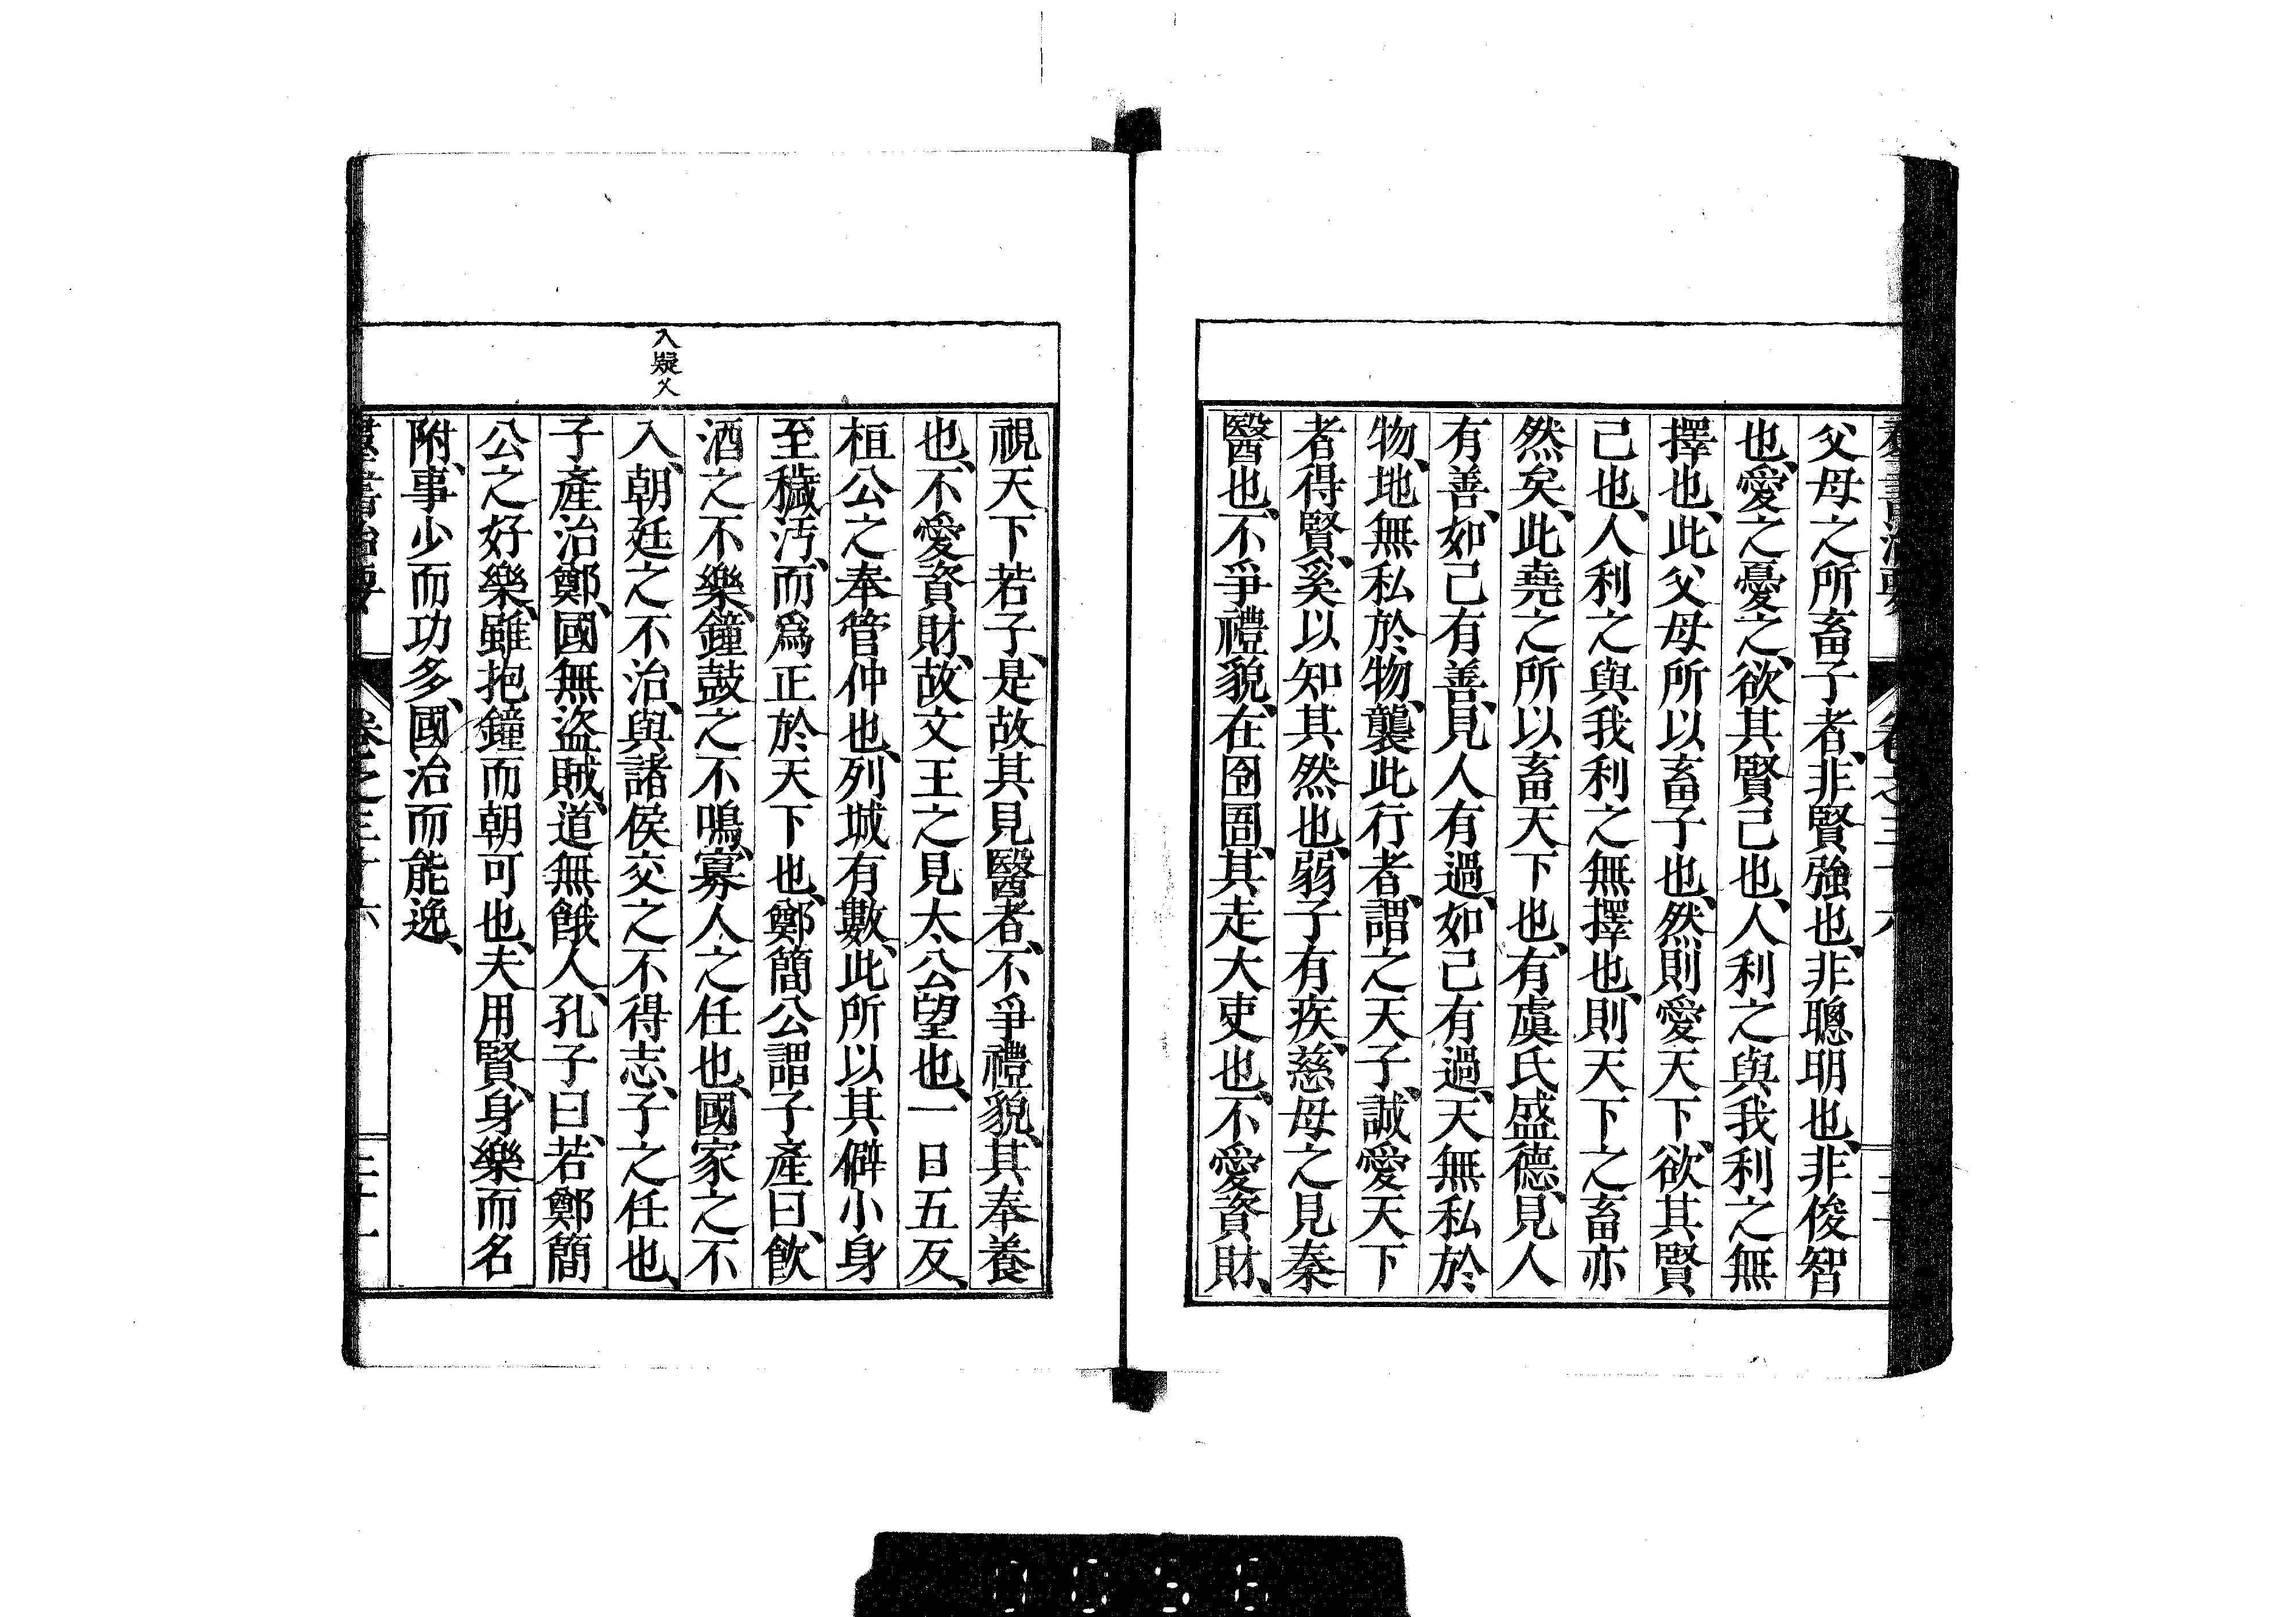 父母之所畜子者、非賢強也、非聰明也、非俊智
也、愛之憂之、欲其賢己也、人利之與我利之無
擇也、此父母所以畜子也、然則愛天下、欲其賢
己也、人利之與我利之無擇也、則天下之畜亦
然矣、此堯之所以畜天下也、有虞氏盛德、見人
有善、如己有善、見人有過、如己有過、天無私於
物、地無私於物、襲此行者、謂之天子、誠愛天下
者得賢、奚以知其然也、弱子有疾、慈母之見秦
醫也、不爭禮貌、在囹圄、其走大吏也、不愛資財、
視天下若子、是故其見醫者、不爭禮貌、其奉養
也、不愛資財、故文王之見太公望也、一日五反、
桓公之奉管仲也、列城有數、此所以其僻小身
至穢汚、而爲正於天下也、鄭簡公謂子產曰、飮
酒之不樂、鐘鼓之不鳴、寡人之任也、國家之不
入疑乂
入、朝廷之不治、與諸侯交之不得志、子之任也、
子產治鄭、國無盜賊、道無餓人、孔子曰、若鄭簡
公之好樂、雖抱鐘而朝可也、夫用賢、身樂而名
附、事少而功多、國治而能逸、
卷之三十六